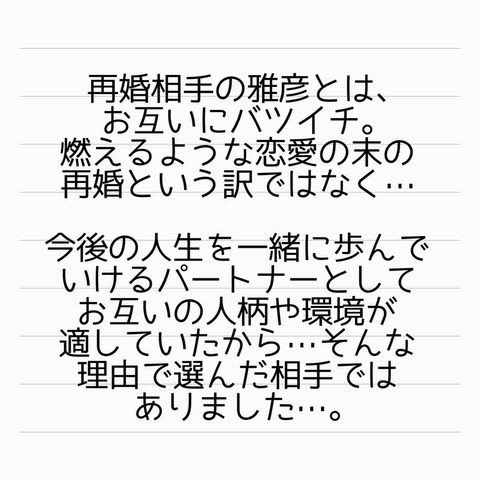 再婚相手の雅彦とは、
お互いにバツイチ。
燃えるような恋愛の末の
再婚という訳ではなく…
今後の人生を一緒に歩んで
いけるパートナーとして
お互いの人柄や環境が
適していたから…そんな
理由で選んだ相手では
ありました…。